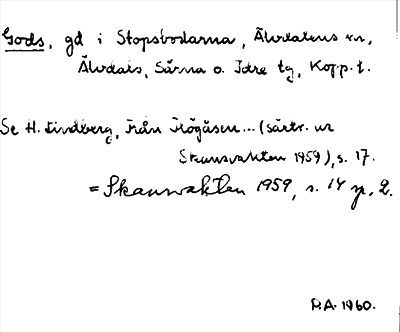 Gods, gd i Stopsbodarna, Älvdalens sn,
Älvdals, Särna o. Idre tg, Kopp.l.
Se H. Lindberg, Från Trögåsen... (särtr. ur
Skansvakten 1959), s. 17.
= Skansvakten 1959, s. 14 sp. 2.
P.A. 1960.